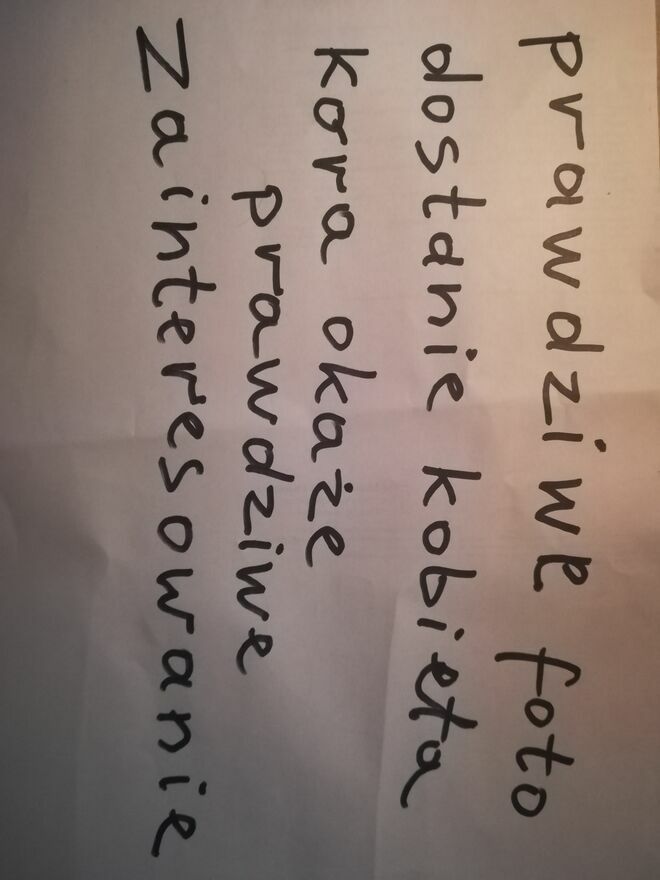 prawdziwe foto
dostanie kobieta
kora okaże
prawdziwe
zainteresowanie